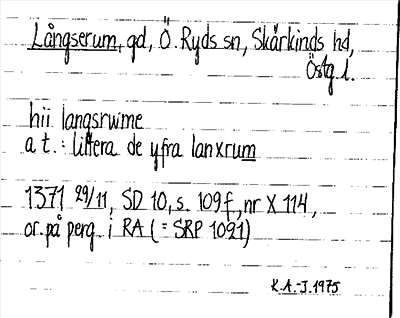 Långserum, gd, Ö. Ryds sn, Skärkinds hd,
Östg.l.
hii langsrwme
a t.: littera de yfra lanxrum
1371 29/11, SD 10, s. 109f, nr X 114,
or. på perg. i RA (= SRP 1021)
K.A.-J. 1975